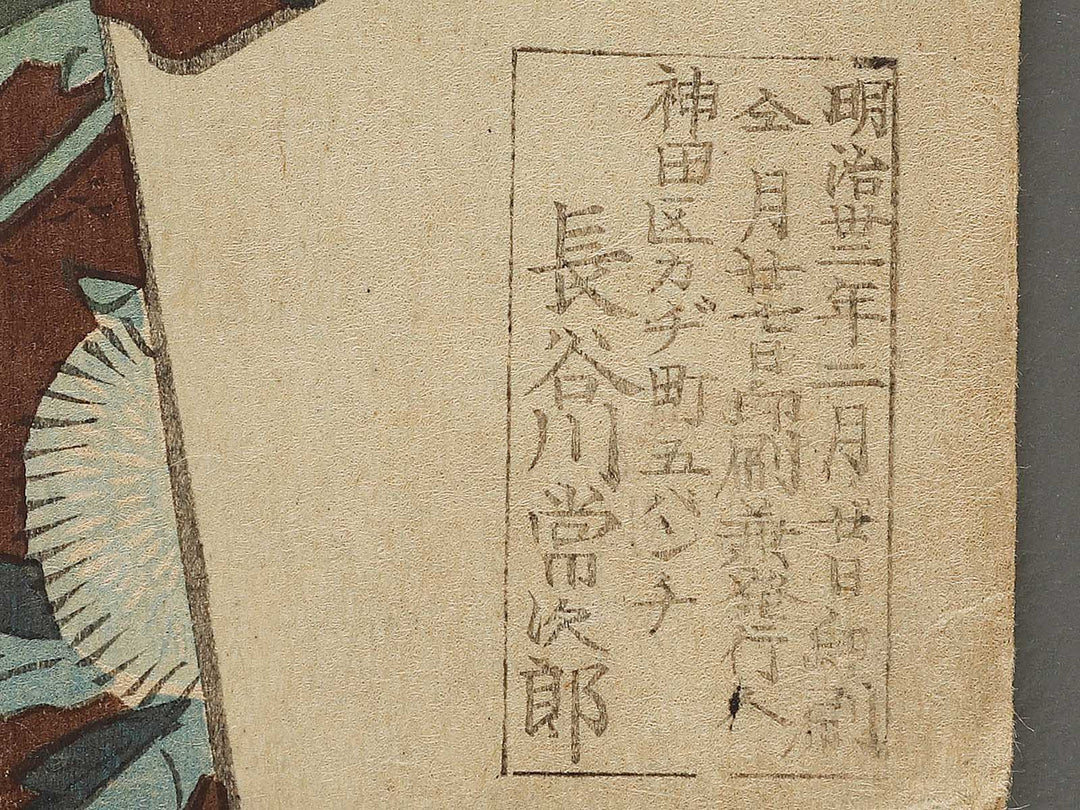 明治卅二年二月廿日印刷
仝月廿七日印刷兼発行人
神田区カヂ町五バンチ
長谷川常次郎